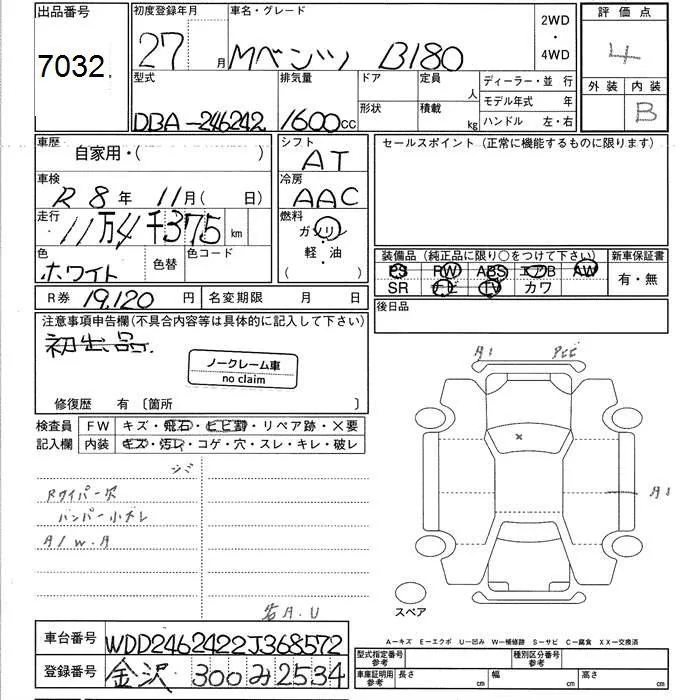 出品番号
7032
初度登録年月
27 月
車名・グレード
Mベンツ B180
2WD
・
4WD
評価点
4
外装 内装
B
型式
DBA-246242
排気量
1600cc
ドア
形状
定員
人
積載
kg
ディーラー・並 行
モデル年式 年
ハンドル 左・右
車歴
自家用・( )
シフト
AT
車検
R 8年 11月( 日)
冷房
AAC
走行
11万4千375 km
燃料
ガソリン
軽・油
( )
色
ホワイト
色替
色コード
R券 19,120 円
名変期限 月 日
セールスポイント (正常に機能するものに限ります)
装備品 (純正品に限り○をつけて下さい)
PS PW ABS エアB AW
SR ナビ TV カワ
新車保証書
有・無
後日品
注意事項申告欄(不具合内容等は具体的に記入して下さい)
初出品.
ノークレーム車
no claim
修復歴 有 〔箇所 〕
検査員
記入欄
FW キズ・飛石・ヒビ割・リペア跡・×要
内装 キズ・汚レ・コゲ・穴・スレ・キレ・破レ
シミ
Rワイパー欠
バンパー小ズレ
A/W.A
各A.U
A1
A1
スペア
A−キズ E−エクボ U−凹み W−補修跡 S−サビ C−腐食 XX−交換済
車台番号 WDD2462422J368572
登録番号 金沢 300 み 2534
型式指定番号
参考
種別区分番号
参考
車庫証明用
参考
長さ cm 幅 cm 高さ cm